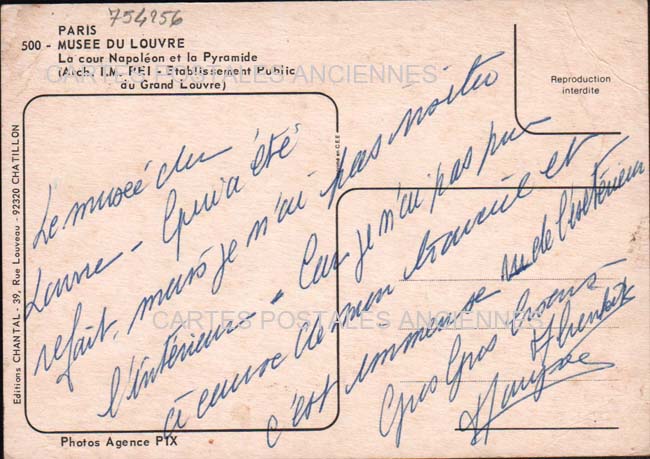 754256
PARIS
500 - MUSEE DU LOUVRE
La cour Napoléon et la Pyramide
(Arch. I.M. PEI - Etablissement Public
du Grand Louvre)
CARTES POSTALES ANCIENNES
Reproduction
interdite
Editions CHANTAL - 39, Rue Louveau - 92320 CHATILLON
Le musée du
Louvre - Qui a été
refait, mais je n'ai pas visité
l'intérieur - Car je n'ai pas pu
à cause de mon travail et
c'est immense de l'extérieur
Gros Gros bisous
CARTES POSTALES ANCIENNES
Photos Agence PIX